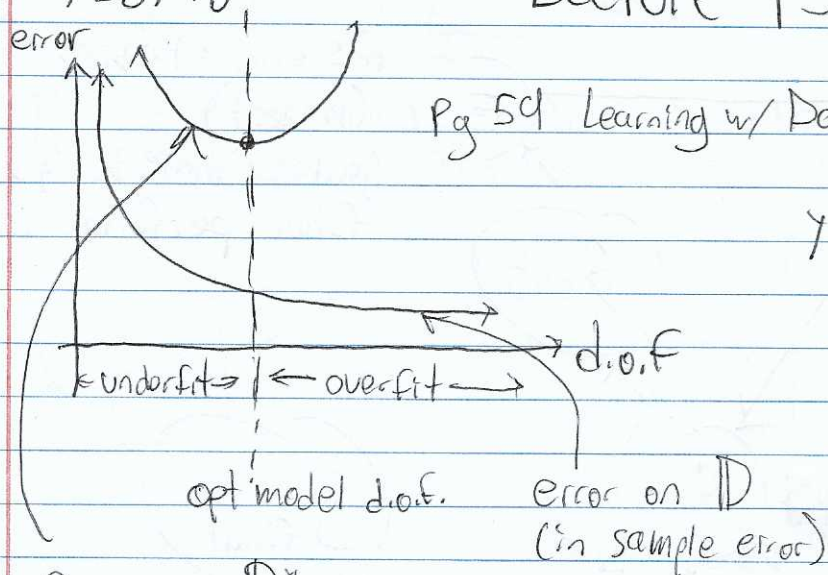 Lecture
error
Pg 59 Learning w/
y
d.o.f
underfit
overfit
opt model d.o.f.
error on 𝔻
(in sample error)